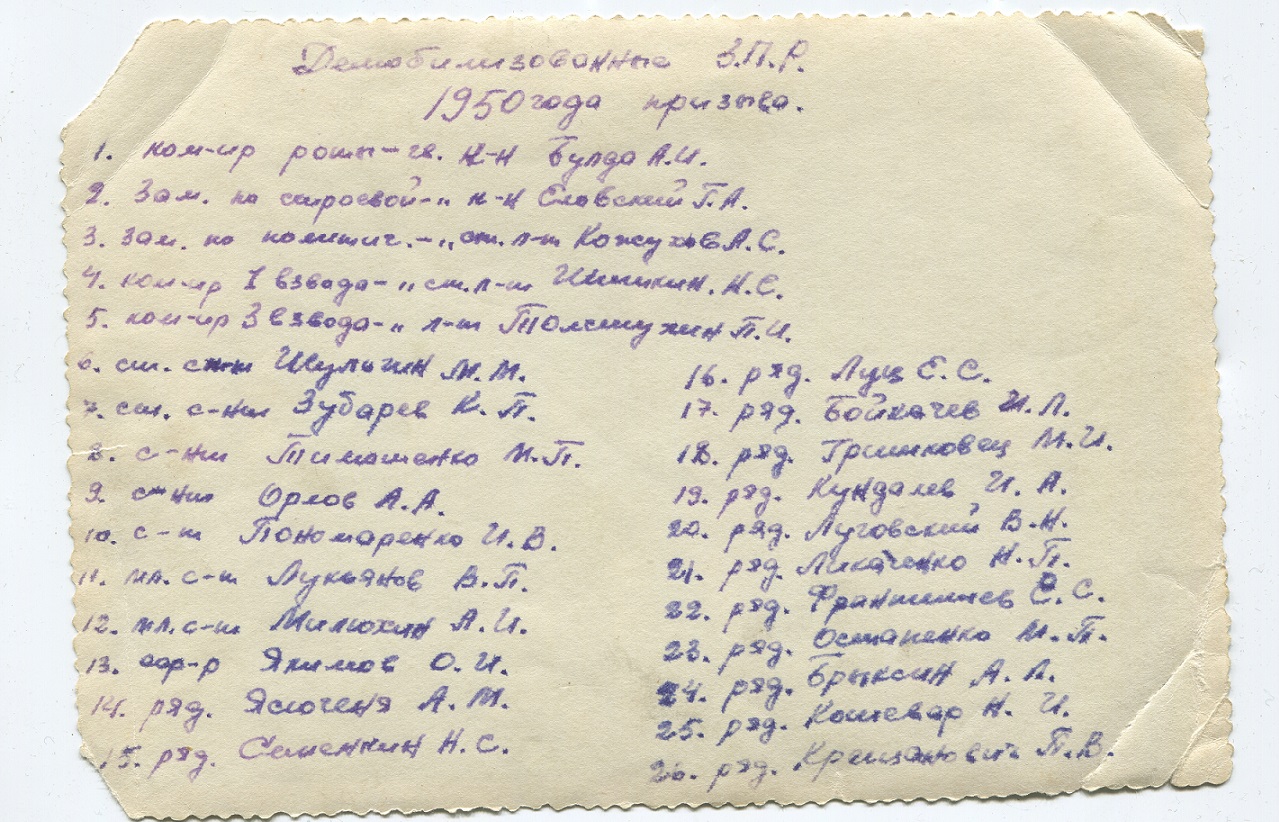 Демобилизованные З.П.Р.
1950 года призыва.
1. ком-ир роты - гв. к-н Булда А.И.
2. Зам. по строевой - " к-н Елавский Г.А.
3. Зам. по политич. - " ст. л-т Кожухов А.С.
4. ком-ир 1 взвода - " ст. л-т Шишкин. Н.С.
5. ком-ир 3 взвода - " л-т Толстухин П.И.
6. ст. с-нт Шульгин М.М.
7. ст. с-нт Зубарев К.П.
8. с-нт Тимошенко М.П.
9. с-нт Орлов А.А.
10. с-т Пономаренко И.В.
11. мл. с-т Лукьянов В.П.
12. мл. с-т Милюхин А.И.
13. ефр-р Якимов О.И.
14. ряд. Ясюченя А.М.
15. ряд. Семенкин Н.С.
16. ряд. Луц Е.С.
17. ряд. Бойкачев И.Л.
18. ряд. Гринковец М.И.
19. ряд. Кундалев И.А.
20. ряд. Луговский В.Н.
21. ряд. Ликаченко Н.П.
22. ряд. С.С.
23. ряд. Остапенко М.П.
24. ряд. Брыксин А.Л.
25. ряд. Кошевар Н.И.
26. ряд. П.В.